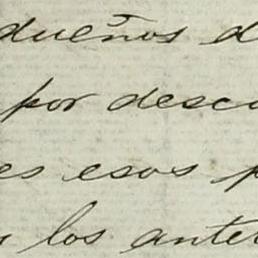 dueños d
por desc
es esos p
los ante